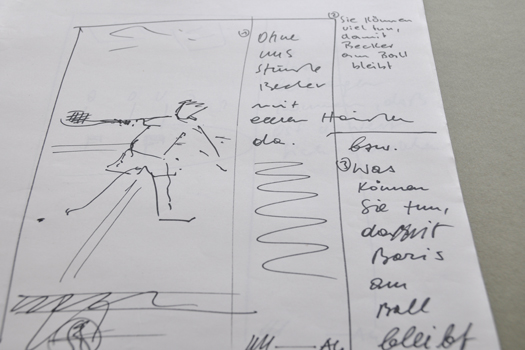 ② Ohne
uns
stünde
Becker
mit
leeren Händen
da.
① Sie können
viel tun,
damit
Becker
am Ball
bleibt
bzw.
③ Was
können
Sie tun,
damit
Boris
am
Ball
bleibt